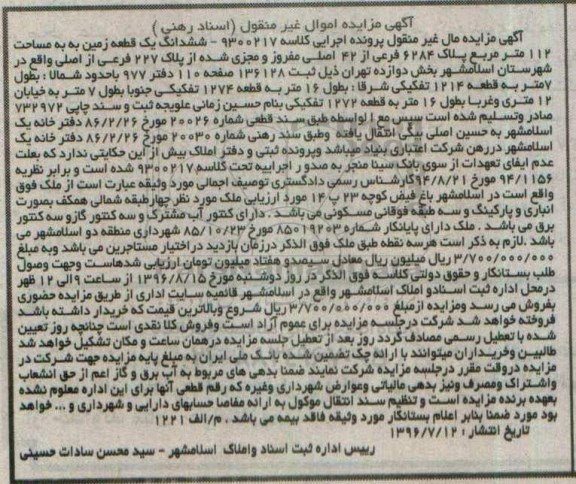 آگهی مزایده اموال غیر منقول (اسناد رهنی)
آگهی مزایده مال غیر منقول پرونده اجرایی کلاسه ۹۳۰۰۲۱۷ - ششدانگ یک قطعه زمین به به مساحت
۱۱۲ متر مربع پلاک ۶۲۸۴ فرعی از ۴۲ اصلی مفروز و مجزی شده از پلاک ۲۲۷ فرعی از اصلی واقع در
شهرستان اسلامشهر بخش دوازده تهران ذیل ثبت ۱۳۶۱۲۸ صفحه ۱۱۰ دفتر ۹۷۷ باحدود شمالا : بطول
۷متر به قطعه ۱۲۱۴ تفکیکی شرقا : بطول ۱۶ متر به قطعه ۱۲۷۴ تفکیکی جنوبا بطول ۷ متر به خیابان
۱۲ متری وغربا بطول ۱۶ متر به قطعه ۱۲۷۲ تفکیکی بنام حسین زمانی علویجه ثبت و سند چاپی ۷۳۲۹۷۲
صادر وتسلیم شده است سپس مع الواسطه طبق سند قطعی شماره ۲۰۰۲۶ مورخ ۸۶/۲/۲۶ دفتر خانه یک
اسلامشهر به حسین اصلی بیگی انتقال یافته وطبق سند رهنی شماره ۲۰۰۳۰ مورخ ۸۶/۲/۲۶ دفتر خانه یک
اسلامشهر دررهن شرکت اعتباری بنیاد میباشد وپرونده ثبتی و دفتر املاک بیش از این حکایتی ندارد که بعلت
عدم ایفای تعهدات از سوی بانک سینا منجر به صدو ر اجراییه تحت کلاسه ۹۳۰۰۲۱۷ شده است و برابر نظریه
۹۴/۱۱۵۶ مورخ ۹۴/۸/۲۱ کارشناس رسمی دادگستری توصیف اجمالی مورد وثیقه عبارت است از ملک فوق
واقع است در اسلامشهر باغ فیض کوچه ۲۳ پ ۱۴ مورد ارزیابی ملک مورد نظر چهارطبقه شمالی همکف بصورت
انباری و پارکینگ و سه طبقه فوقانی مسکونی می باشد . دارای کنتور آب مشترک و سه کنتور گازو سه کنتور
برق می باشد . ملک دارای پایانکار شماره ۸۵۰۱۹۲۰۳ مورخ ۸۵/۱۰/۲۳ شهرداری منطقه دو اسلامشهر می
باشد .لازم به ذکر است هرسه نقطه طبق ملک فوق الذکر درزمان بازدید دراختیار مستاجرین می باشد وبه مبلغ
۳/۷۰۰/۰۰۰/۰۰۰ ریال میلیون ریال معادل سیصدو هفتاد میلیون تومان ارزیابی شدهاست وجهت وصول
طلب بستانکار و حقوق دولتی کلاسه فوق الذکر در روز دوشنبه مورخ ۱۳۹۶/۸/۱۵ از ساعت ۹ الی ۱۲ ظهر
درمحل اداره ثبت اسنادو املاک اسلامشهر واقع در اسلامشهر قائمیه سایت اداری از طریق مزایده حضوری
بفروش می رسد ومزایده ازمبلغ ۳/۷۰۰/۰۰۰/۰۰۰ ریال شروع وبالاترین قیمت که خریدار داشته باشد
فروخته خواهد شد شرکت درجلسه مزایده برای عموم آزاد است وفروش کلا نقدی است چنانچه روز تعیین
شده با تعطیل رسمی مصادف گردد روز بعد از تعطیل جلسه مزایده درهمان ساعت و مکان تشکیل خواهد شد
طالبین وخریداران میتوانند با ارائه چک تضمین شده بانک ملی ایران به مبلغ پایه مزایده جهت شرکت در
مزایده دروقت مقرر درجلسه مزایده شرکت نمایند ضمنا بدهی های مربوط به آب برق و گاز اعم از حق انشعاب
واشتراک ومصرف ونیز بدهی مالیاتی وعوارض شهرداری وغیره که رقم قطعی آنها برای این اداره معلوم نشده
بعهده برنده مزایده است و تنظیم سند انتقال موکول به ارائه مفاصا حسابهای دارایی و شهرداری و ... خواهد
بود مورد ضمنا بنابر اعلام بستانکار مورد وثیقه فاقد بیمه می باشد . م/الف ۱۲۲۱
تاریخ انتشار : ۱۳۹۶/۷/۱۲
رییس اداره ثبت اسناد واملاک اسلامشهر - سید محسن سادات حسینی